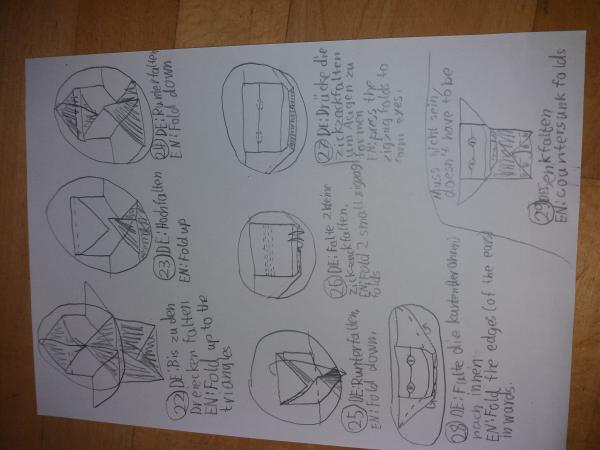 22 DE: Bis zu den
Dreiecken falten
EN: Fold up to the
triangles
23 DE: Hochfalten
EN: Fold up
24 DE: Runterfalten
EN: Fold down
25 DE: Runterfalten,
EN: Fold down.
26 DE: Falte 2 kleine
zickzackfalten.
EN: Fold 2 small zigzag
folds
27 DE: Drücke die
zickzackfalten
um Augen zu
formen
EN: press the
zigzag folds to
form eyes.
28 DE: Falte die kanten (der ohren)
nach innen.
EN: Fold the edges (of the ears)
inwards.
Muss nicht sein/
doesn't have to be
29 DE: Senkfalten
EN: Countersunk folds